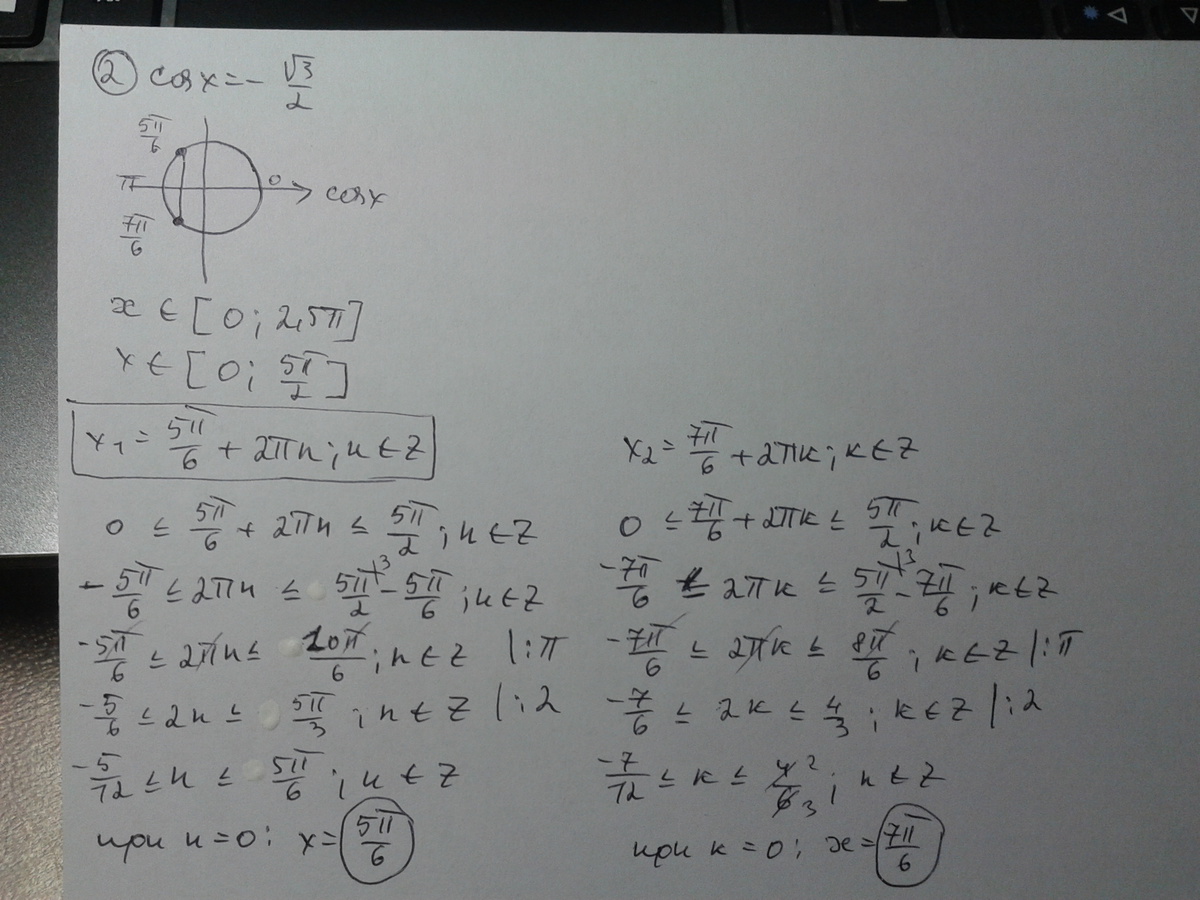 ② cos x = - √3/2
5π/6
π 0 cos x
7π/6
x ∈ [0; 2,5π]
x ∈ [0; 5π/2]
x₁ = 5π/6 + 2πn; n ∈ Z
0 ≤ 5π/6 + 2πn ≤ 5π/2; n ∈ Z
-5π/6 ≤ 2πn ≤ 5π/2 \3 - 5π/6; n ∈ Z
-5π/6 ≤ 2πn ≤ 10π/6; n ∈ Z |:π
-5/6 ≤ 2n ≤ 5π/3; n ∈ Z |:2
-5/12 ≤ n ≤ 5π/6; n ∈ Z
при n = 0: x = 5π/6
x₂ = 7π/6 + 2πk; k ∈ Z
0 ≤ 7π/6 + 2πk ≤ 5π/2; k ∈ Z
-7π/6 ≤ 2πk ≤ 5π/2 \3 - 7π/6; k ∈ Z
-7π/6 ≤ 2πk ≤ 8π/6; k ∈ Z |:π
-7/6 ≤ 2k ≤ 4/3; k ∈ Z |:2
-7/12 ≤ k ≤ 4/6 2/3; n ∈ Z
при k = 0; x = 7π/6